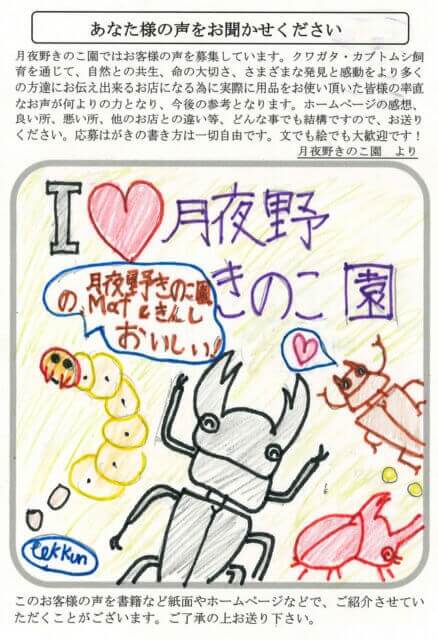 あなた様の声をお聞かせください
月夜野きのこ園ではお客様の声を募集しています。クワガタ・カブトムシ飼
育を通じて、自然との共生、命の大切さ、さまざまな発見と感動をより多く
の方達にお伝え出来るお店になる為に実際に用品をお使い頂いた皆様の率直
なお声が何よりの力となり、今後の参考となります。ホームページの感想、
良い所、悪い所、他のお店との違い等、どんな事でも結構ですので、お送り
ください。応募はがきの書き方は一切自由です。文でも絵でも大歓迎です！
月夜野きのこ園 より
I 月夜野
きのこ園
月夜野きのこ園
の、Mat &きんし
おいしい!
tekkun
このお客様の声を書籍など紙面やホームページなどで、ご紹介させてい
ただくことがございます。ご了承の上お送り下さい。